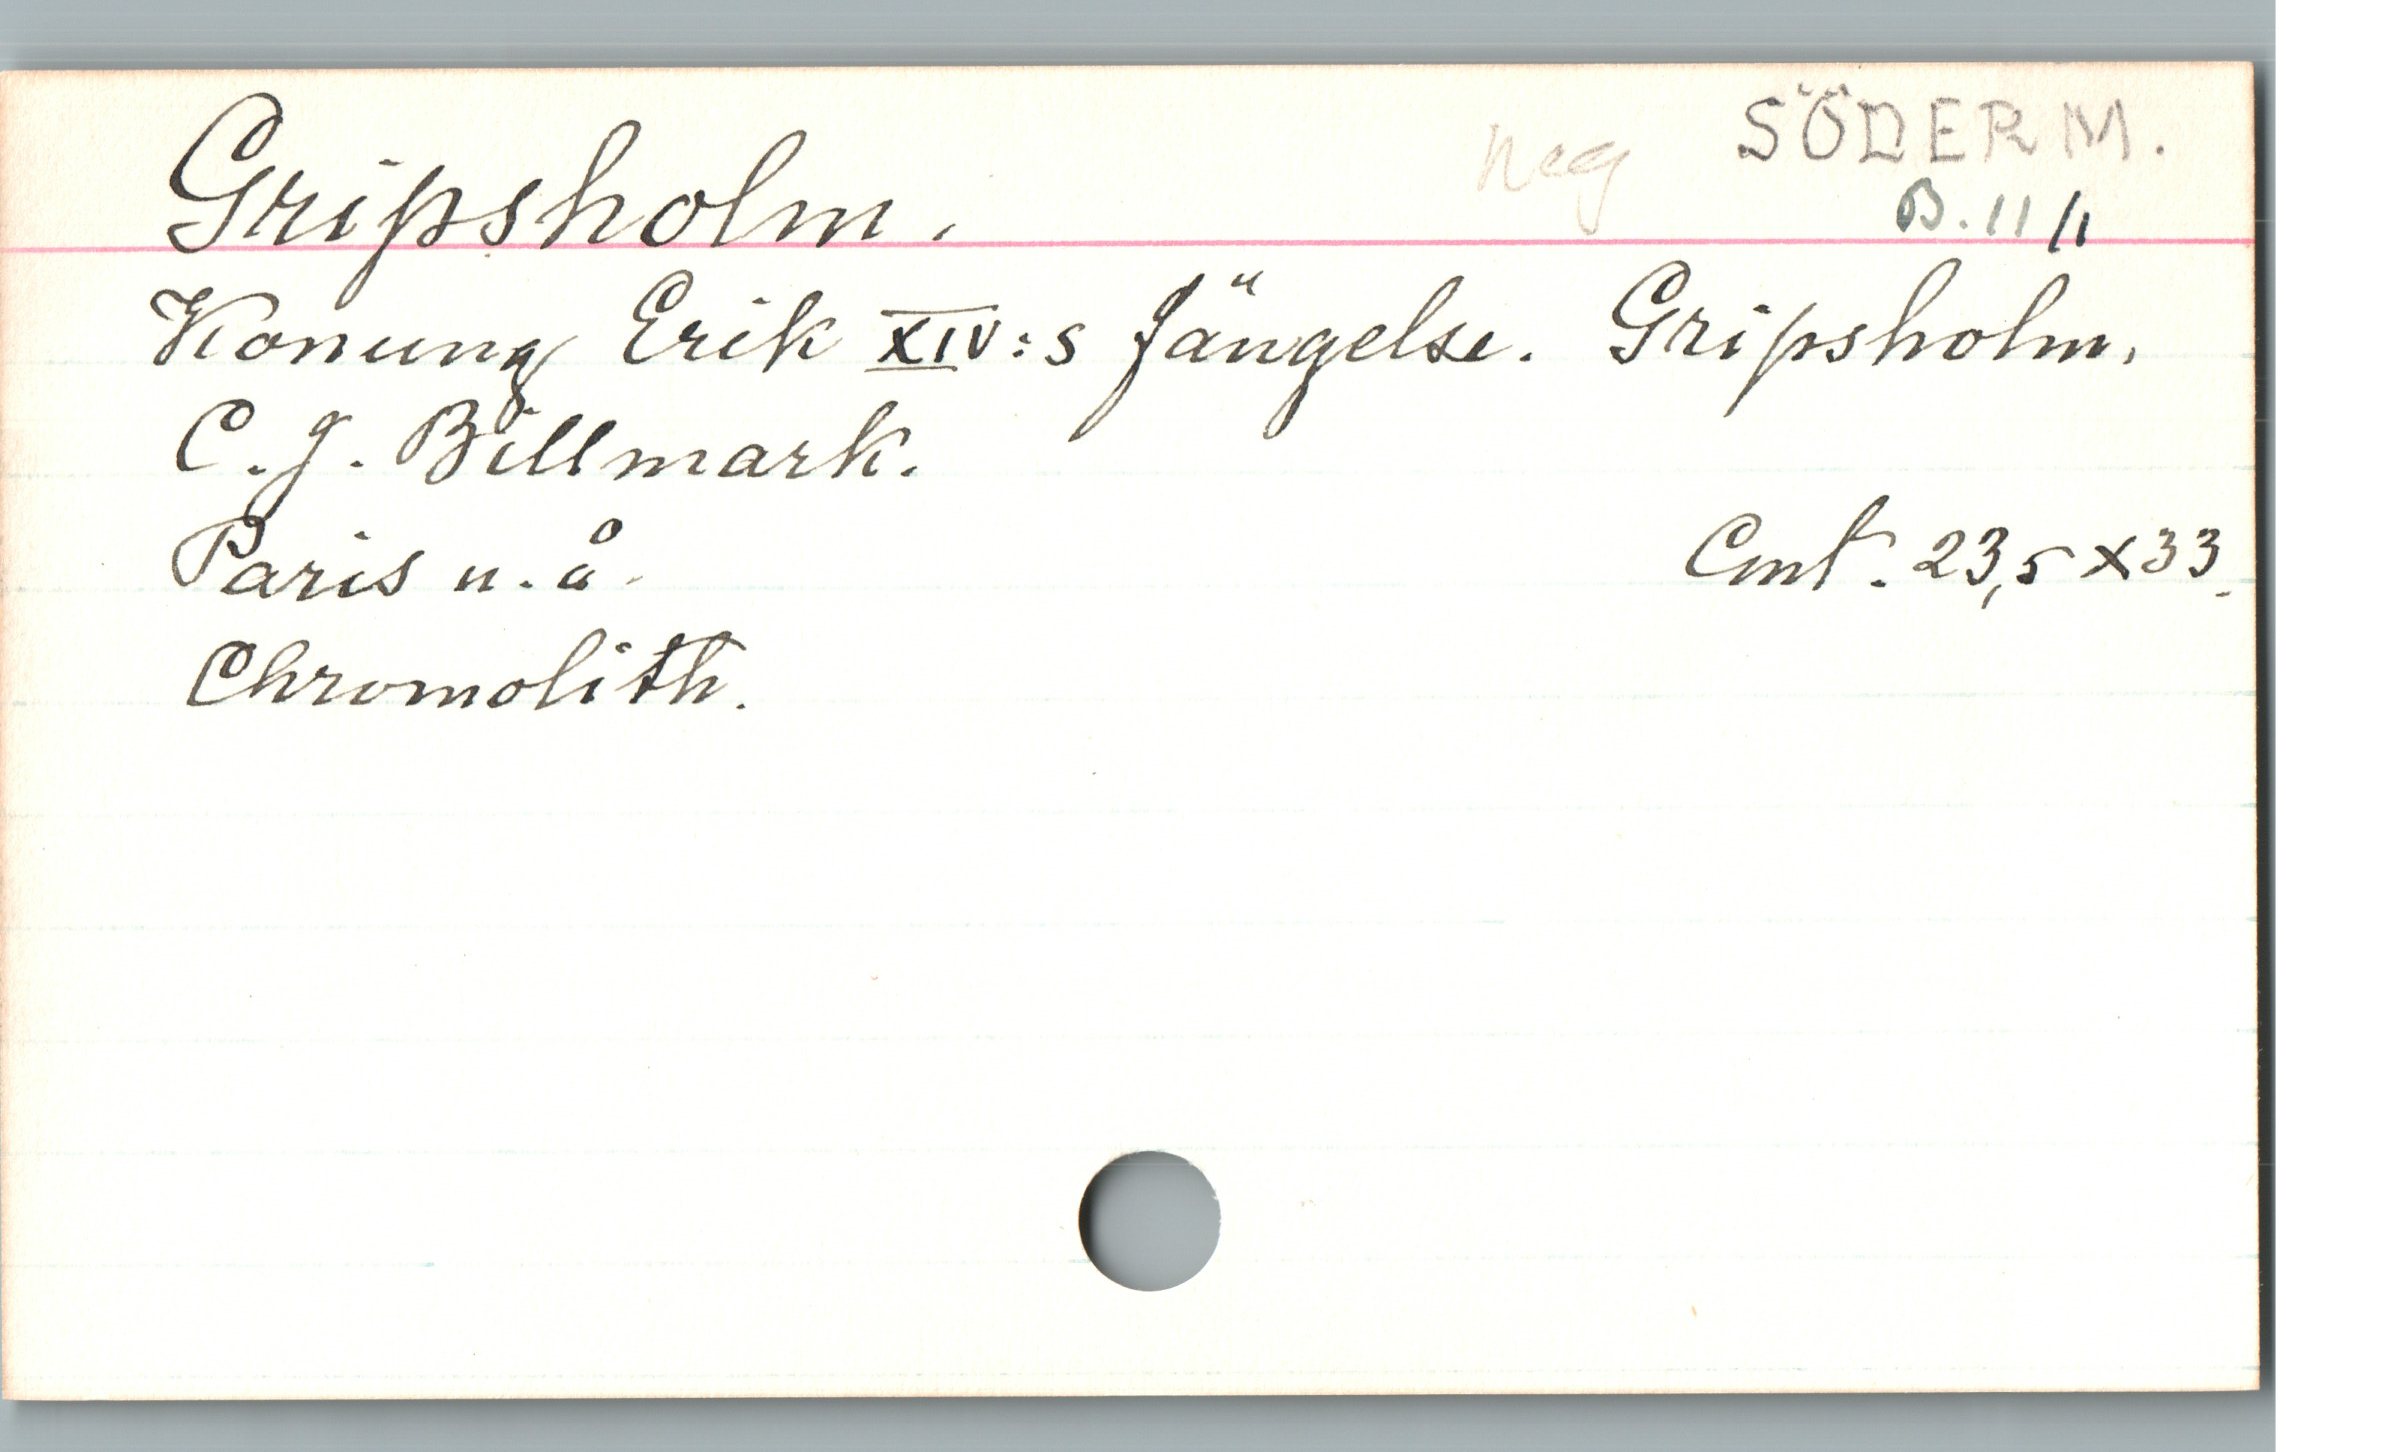 Gripsholm.
neg
SÖDERM.
B.11/1
Konung Erik XIV:s fängelse. Gripsholm.
C.J. Billmark.
Paris u.å.
Cmt. 23,5 x 33.
Chromolith.